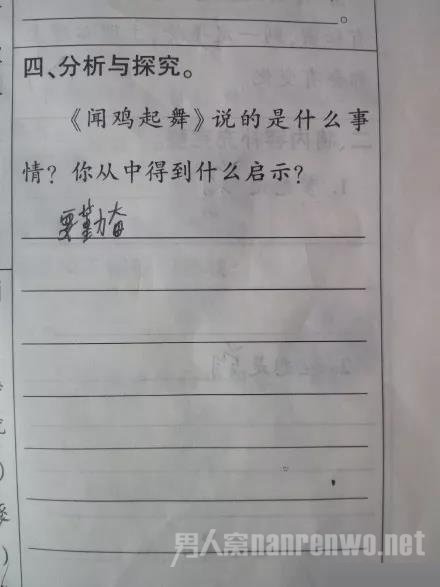 。
四、分析与探究。
《闻鸡起舞》说的是什么事
情?你从中得到什么启示?
要勤奋
男人窝nanrenwo.net